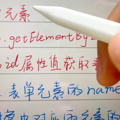 元素
.getElementBy
id属性值获取
表单元素的name
中对应的元素的